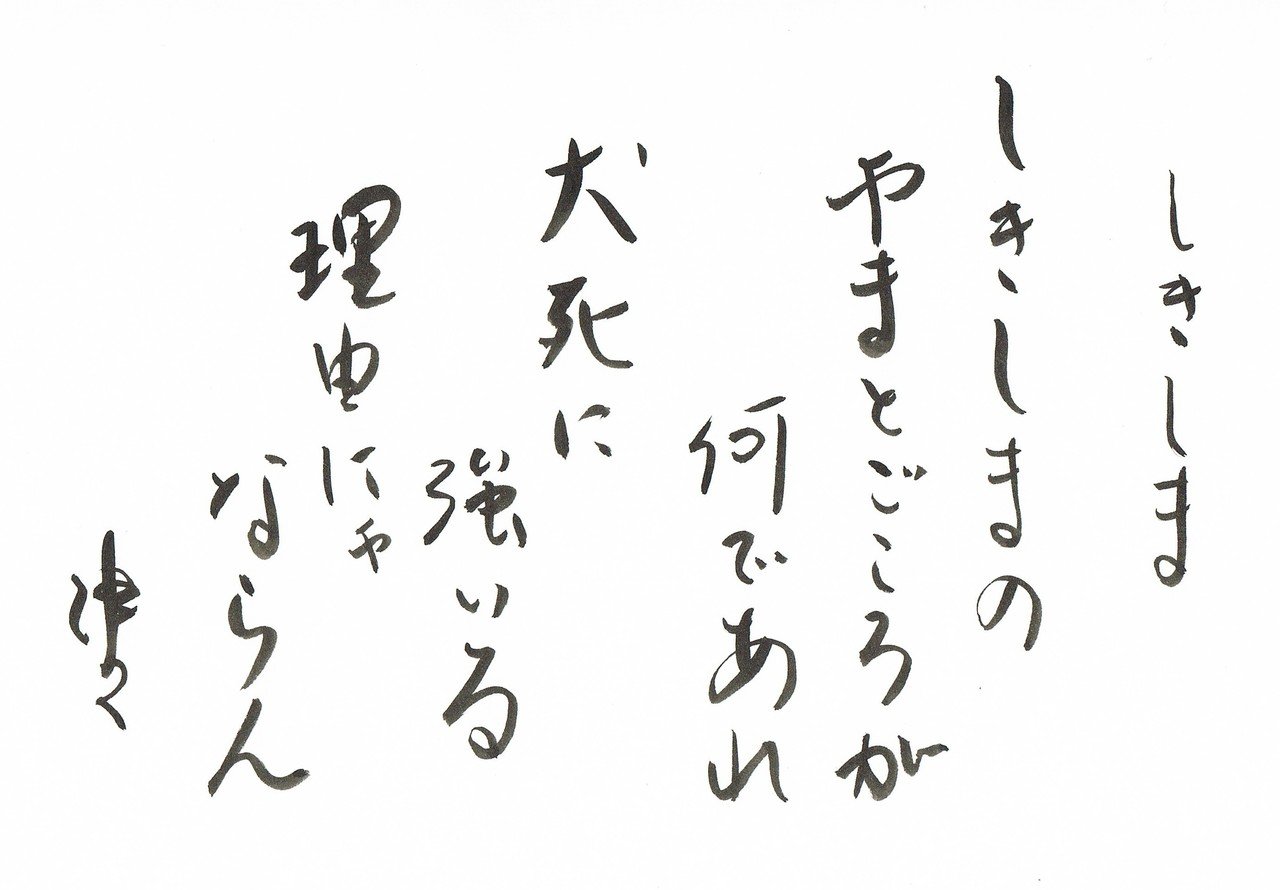 しきしま
しきしまの
やまとごころが
何であれ
犬死に
強いる
理由にゃ
ならん